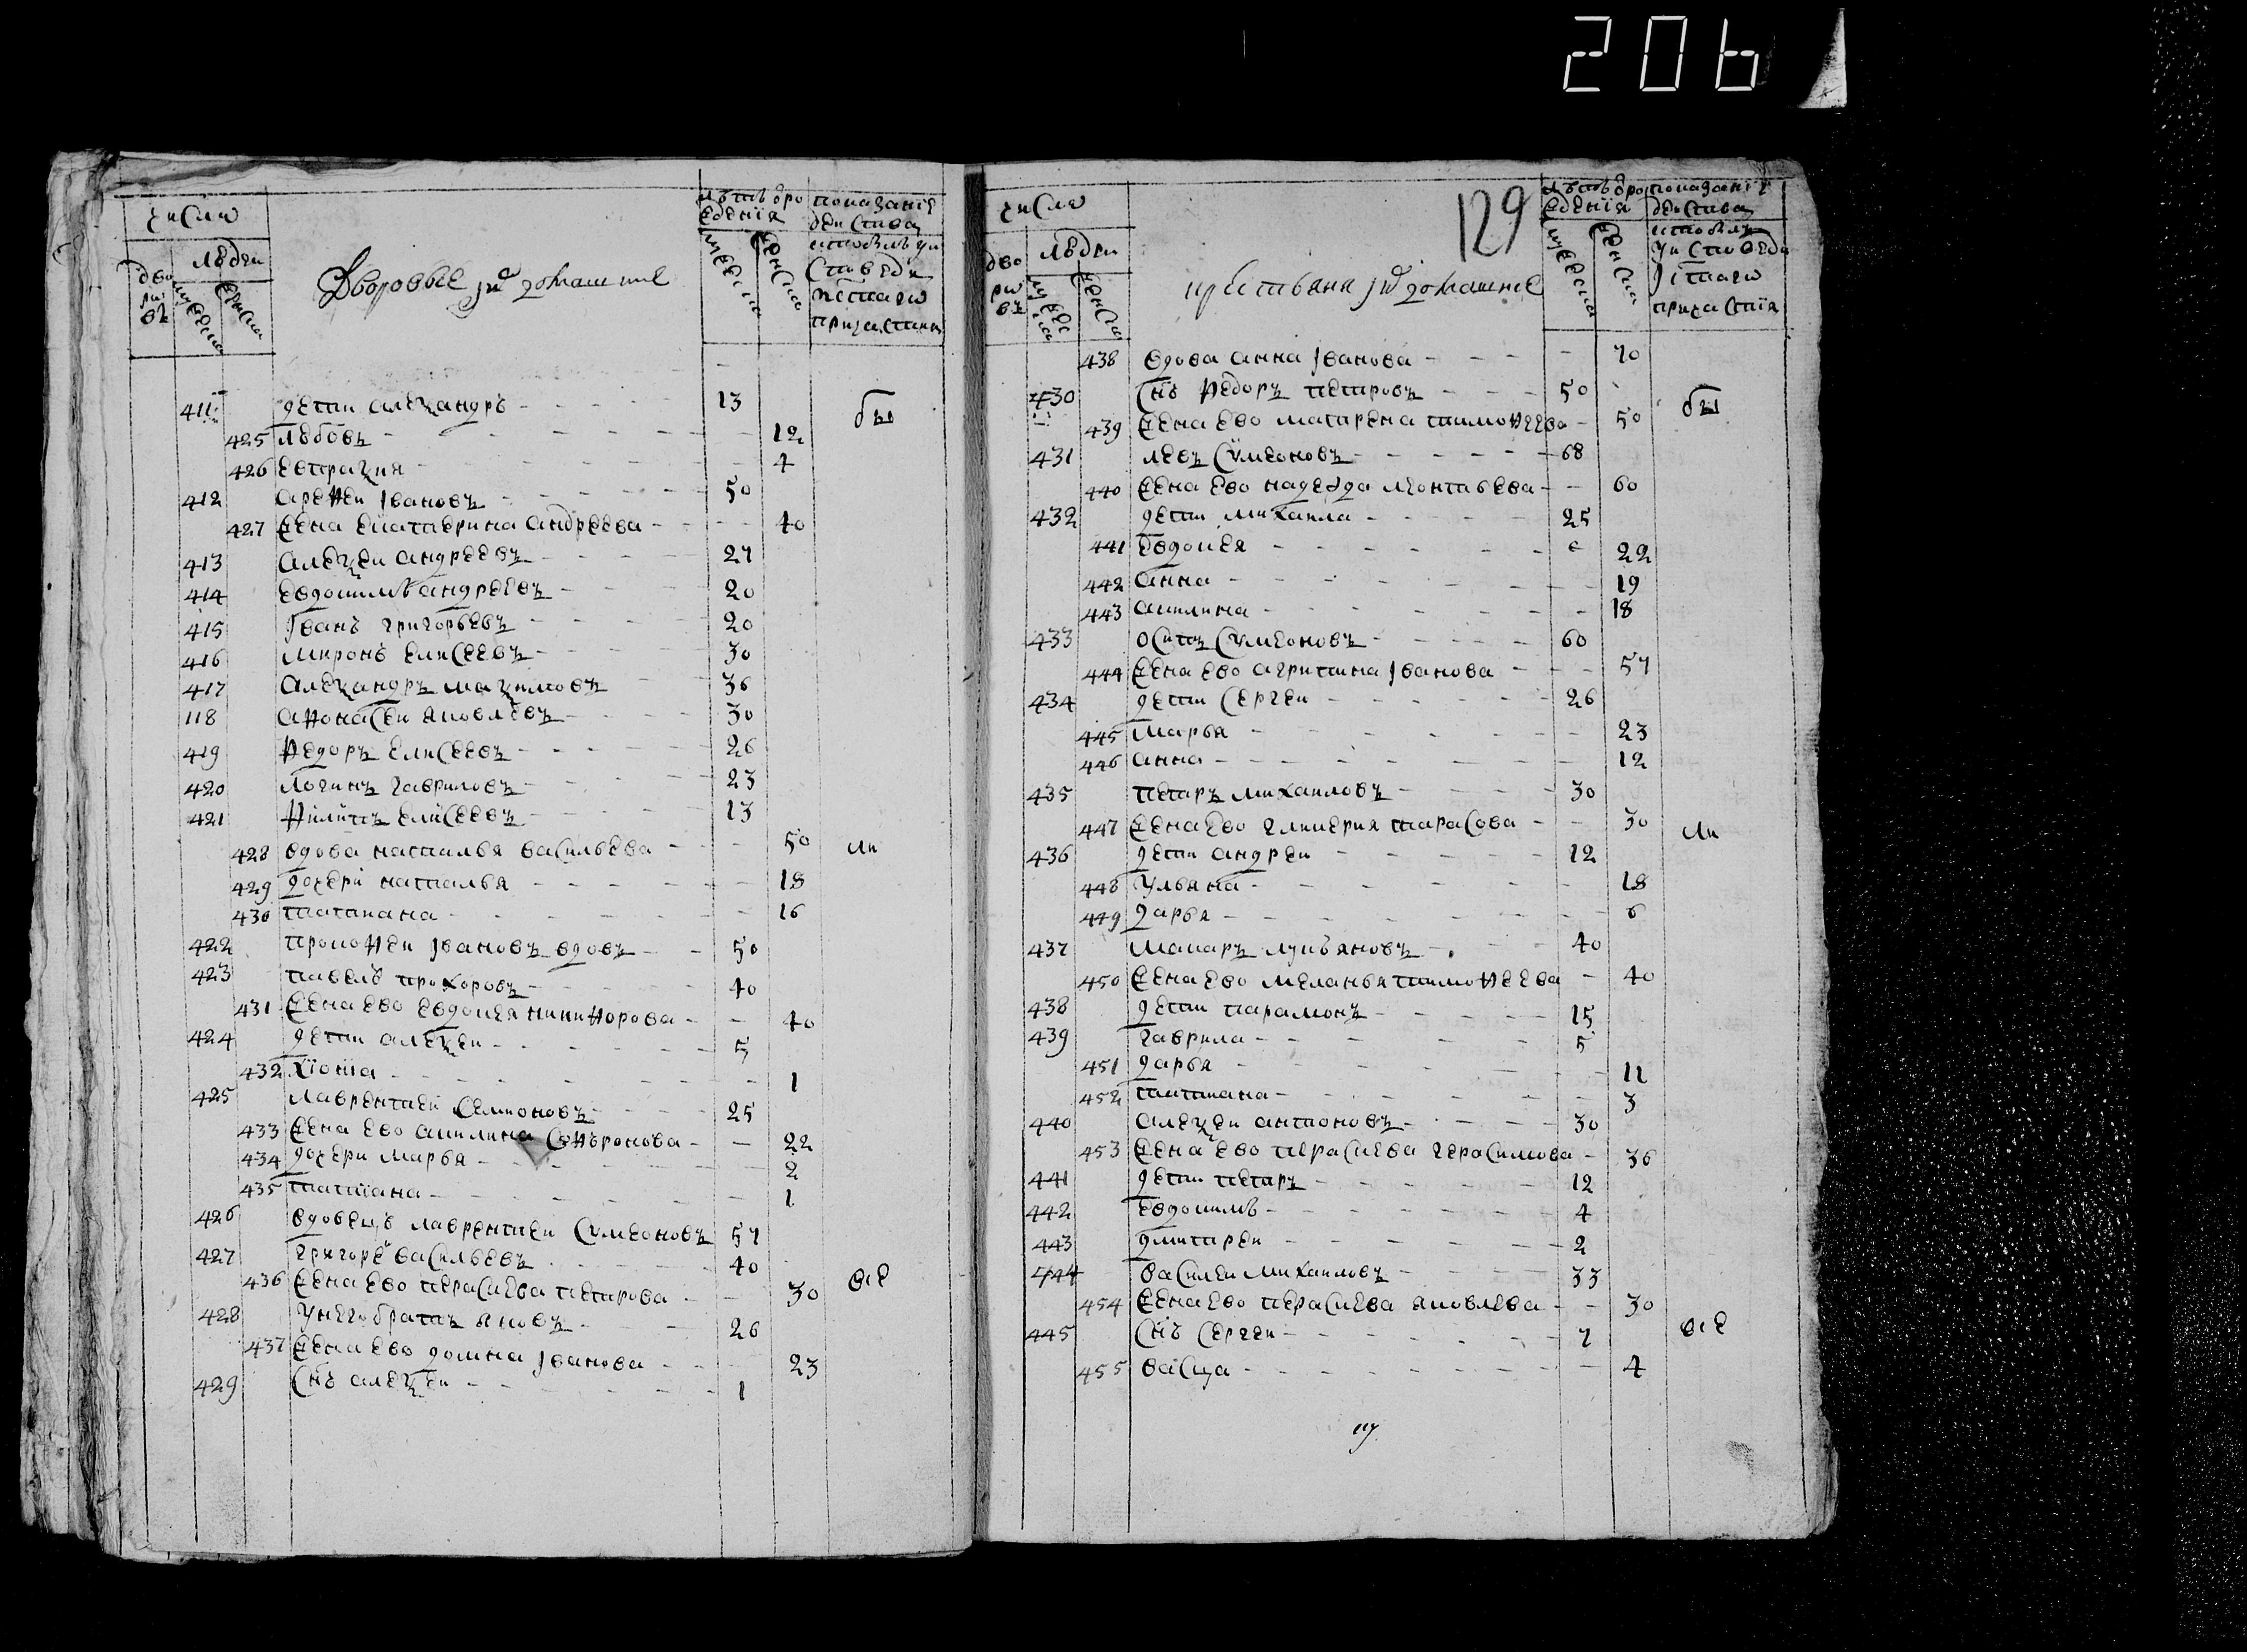 206
числа
людей
дво
ров
мужеска
женска
Дворовые и домашние
лѣтъ ро
ждения
мужеска
женска
показание
действа
кто былъ у и
споведи
святаго
причастия
411 дети александръ - - - - 13 бы
425 любовь - - - - 12
426 евпраѯия - - - - 4
412 арефеи Ивановъ - - - - 50
427 жена екатерина андреева - - - - 40
413 алеѯеи андреевъ - - - - 27
414 евдокимъ андреевъ - - - - 20
415 Иванъ григорьевъ - - - - 20
416 миронъ елисеевъ - - - - 30
417 алеѯандръ маѯимовъ - - 36
118 афонасеи яковлевъ - - - - 30
419 федоръ елисеевъ - - - - 26
420 логинъ гавриловъ - - - - 23
421 филипъ елисеевъ - - - - 13
428 вдова наталья васильева - - - 50 ли
429 дочери наталья - - - - 18
430 татиана - - - - 16
422 прокофеи Ивановъ вдовъ - - 50
423 павелъ прохоровъ - - - - 40
431 жена ево евдокея никифорова - - 40
424 дети алеѯеи - - - - 5
432 хиония - - - - 1
425 лаврентеи семионовъ - - - 25
433 жена ево акилина софронова - - 22
434 дочери марья - - - - 2
435 татиана - - - - 1
426 вдовецъ лаврентеи сумеоновъ 57
427 григореи васильевъ - - - - 40
436 жена ево параскева петрова - - 30 все
428 у него братъ яковъ - - - - 26
437 жена ево домна Иванова - - - 23
429 снъ алеѯеи - - - - 1
129
числа
людеи
дво
ров
мужеска
женска
крестьяня и домашние
лѣтъ ро
ждения
мужеска
женска
показание
действа
кто былъ
у исповеди
и святаго
причастия
438 вдова анна Иванова - - - - 70
430 снъ федоръ петровъ - - - 50 бы
439 жена ево матрена тимофеева - 50
431 левъ сумеоновъ - - - - 68
440 жена ево надежда леонтьева - - 60
432 дети михаила - - - - 25
441 евдокея - - - - 22
442 анна - - - - 19
443 акилина - - - - 18
433 осипъ сумеоновъ - - - - 60
444 жена ево агрипина Иванова - - - 57
434 дети сергеи - - - - 26
445 марья - - - - 23
446 анна - - - - 12
435 петръ михаиловъ - - - - 30
447 жена ево гликерия тарасова - - 30 ли
436 дети андреи - - - - 12
448 ульяна - - - - 18
449 дарья - - - - 6
437 макаръ лукьяновъ - - - 40
450 жена ево меланья тимофеева - 40
438 дети парамонъ - - - - 15
439 гаврила - - - - 5
451 дарья - - - - 11
452 татиана - - - - 3
440 алеѯеи антоновъ - - - - 30
453 жена ево параскева герасимова - 36
441 дети петръ - - - - 12
442 евдокимъ - - - - 4
443 дмитреи - - - - 2
444 василеи михаиловъ - - - - 33
454 жена ево параскева яковлева - - 30
445 снъ сергеи - - - - 7 все
455 васца - - - - 4